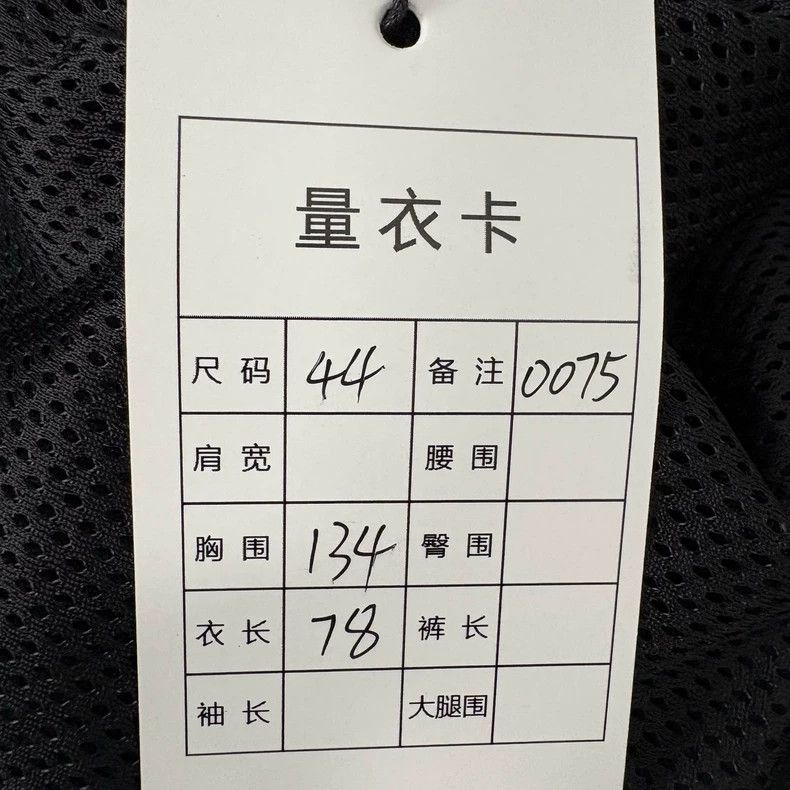 量衣卡
尺码 44 备注 0075
肩宽 腰围
胸围 134 臀围
衣长 78 裤长
袖长 大腿围